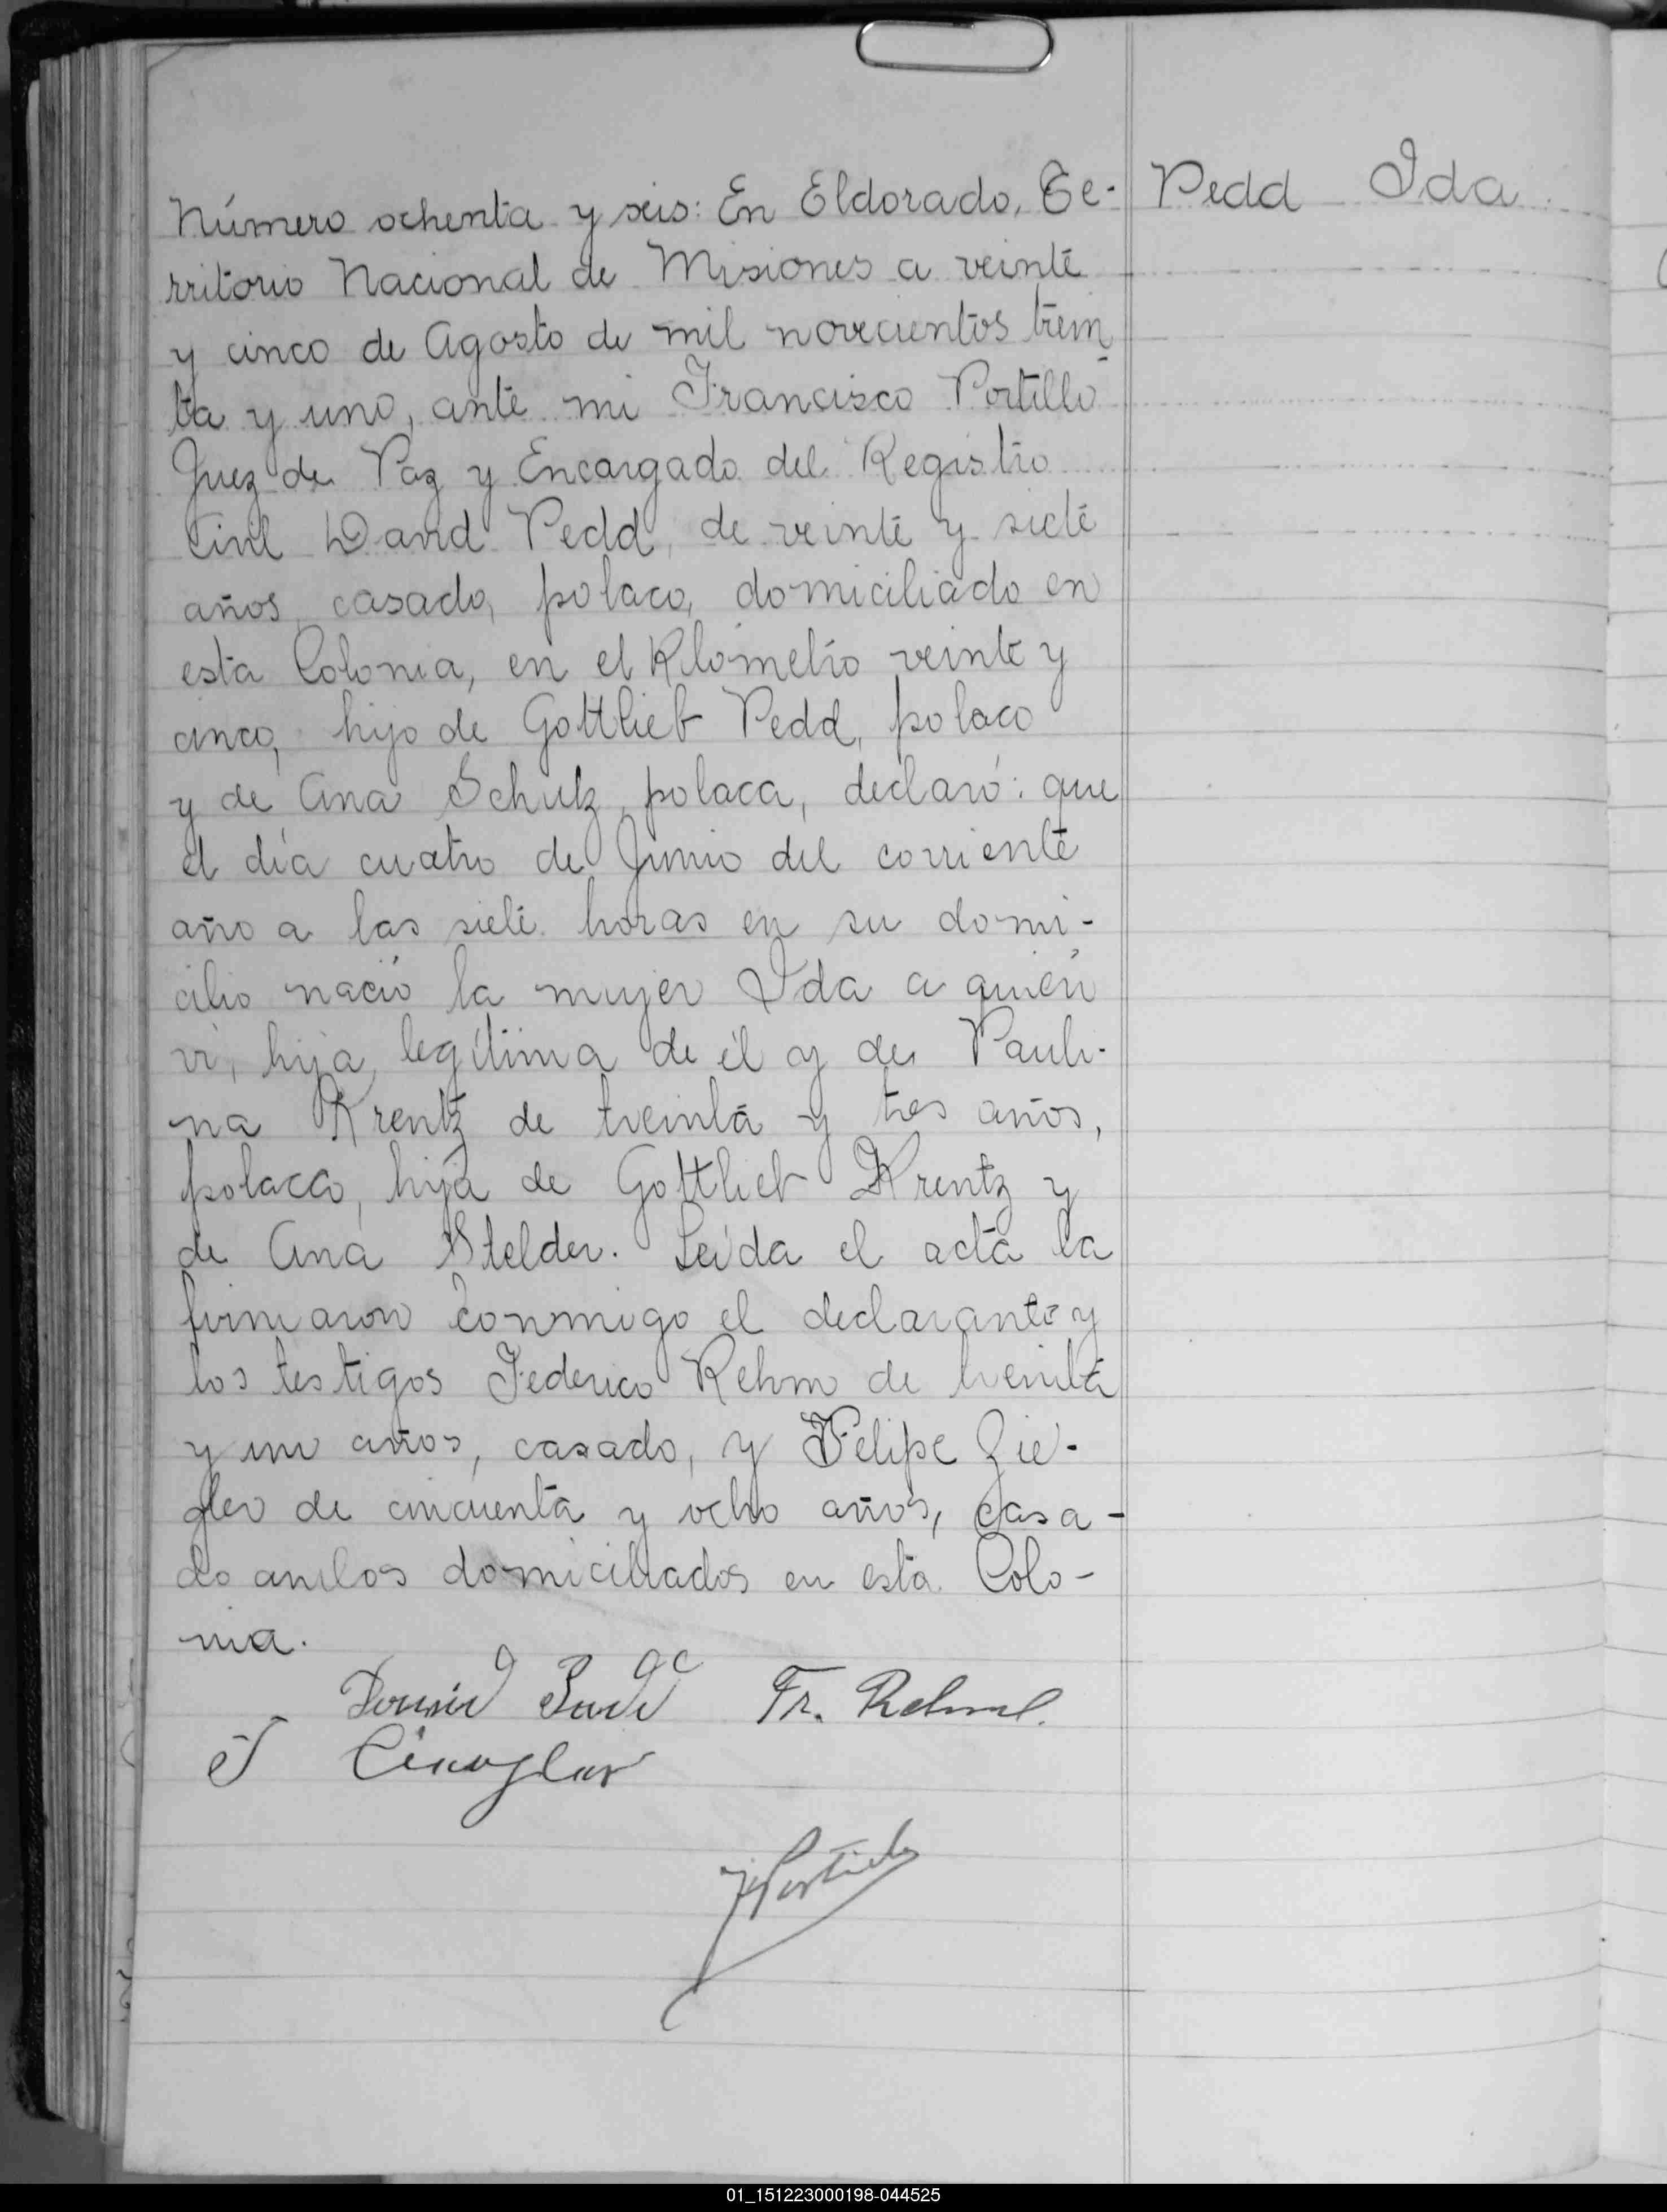 Número ochenta y seis: En Eldorado, Te-
rritorio Nacional de Misiones a veinte
y cinco de Agosto de mil novecientos trein
ta y uno, ante mi Francisco Portillo
Juez de Paz y Encargado del Registro
Civil David Pedd, de veinte y siete
años, casado, polaco, domiciliado en
esta Colonia, en el Kilómetro veinte y
cinco, hijo de Gottlieb Pedd, polaco
y de Ana Schulz, polaca, declaró: que
el día cuatro de Junio del corriente
año a las siete horas en su domi-
cilio nació la mujer Ida a quién
vi, hija legítima de él y de Pauli-
na Krentz de treinta y tres años,
polaca, hija de Gottlieb Krentz y
de Ana Stelder. Leída el acta la
firmaron conmigo el declarante y
los testigos Federico Rehm de treinta
y un años, casado, y Felipe Zie-
gler de cincuenta y ocho años, casa-
do ambos domiciliados en esta Colo-
nia.
Fr. Rehm
Pedd Ida
01_151223000198-044525